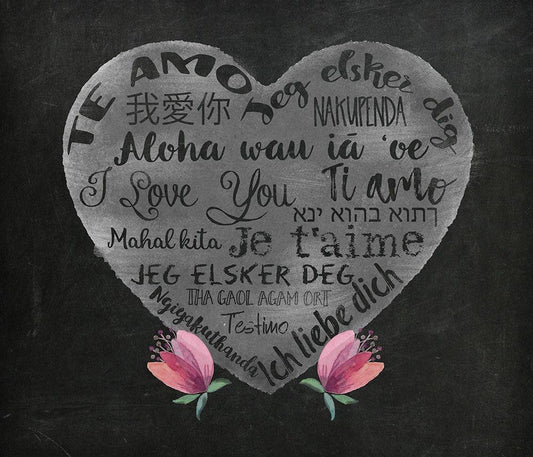 TE AMO
Jeg elsker dig
我愛你
NAKUPENDA
Aloha wau iā 'oe
I Love You
Ti amo
רתוא בהוא ינא
Mahal kita
Je t'aime
JEG ELSKER DEG
THA GAOL AGAM ORT
Ngiyakuthanda
Testimo
Ich liebe dich